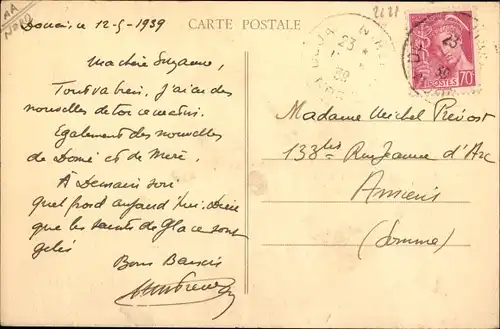 AA
NORD
Douai, le 12-5-1939
CARTE POSTALE
Ma chère Suzanne,
Tout va bien. J'ai eu des
nouvelles de toi ce matin.
Egalement des nouvelles
de Domé et de Meré.
A Demain soir
quel froid aujourd'hui. Dire
que les saints de Glace sont
gelés
Bons Baisers
DOUAI
NORD
23
39
POSTES
70
Madame Michel Prévost
133bis Rue Jeanne d'Arc
Amiens
(Somme)